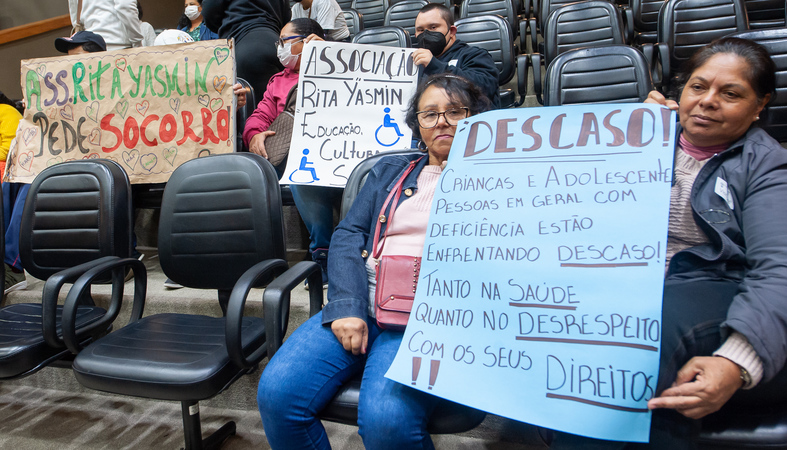 ASS. RITA YASMIN
PEDE SOCORRO
ASSOCIAÇÃO
RITA YASMIN
EDUCAÇÃO,
CULTURA
S
¡DESCASO!
CRIANÇAS E ADOLESCENTE
PESSOAS EM GERAL COM
DEFICIÊNCIA ESTÃO
ENFRENTANDO DESCASO!
TANTO NA SAÚDE
QUANTO NO DESRESPEITO
COM OS SEUS DIREITOS
!!